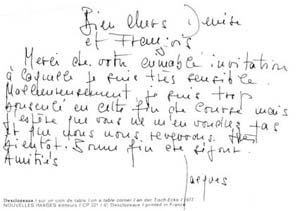 Bien chers Denise
et François
Merci de votre aimable invitation
à laquelle je suis très sensible.
Malheureusement je suis trop
bousculé en cette fin de course mais
j'espère que vous ne m'en voudrez pas
et que nous nous reverrons très
bientôt. Bonne fin de séjour.
Amitiés
Jacques
Desclozeaux / sur un coin de table / on a table corner / an der Tisch-Ecke / 1977
NOUVELLES IMAGES éditeurs / CP 321 / © Desclozeaux / printed in France